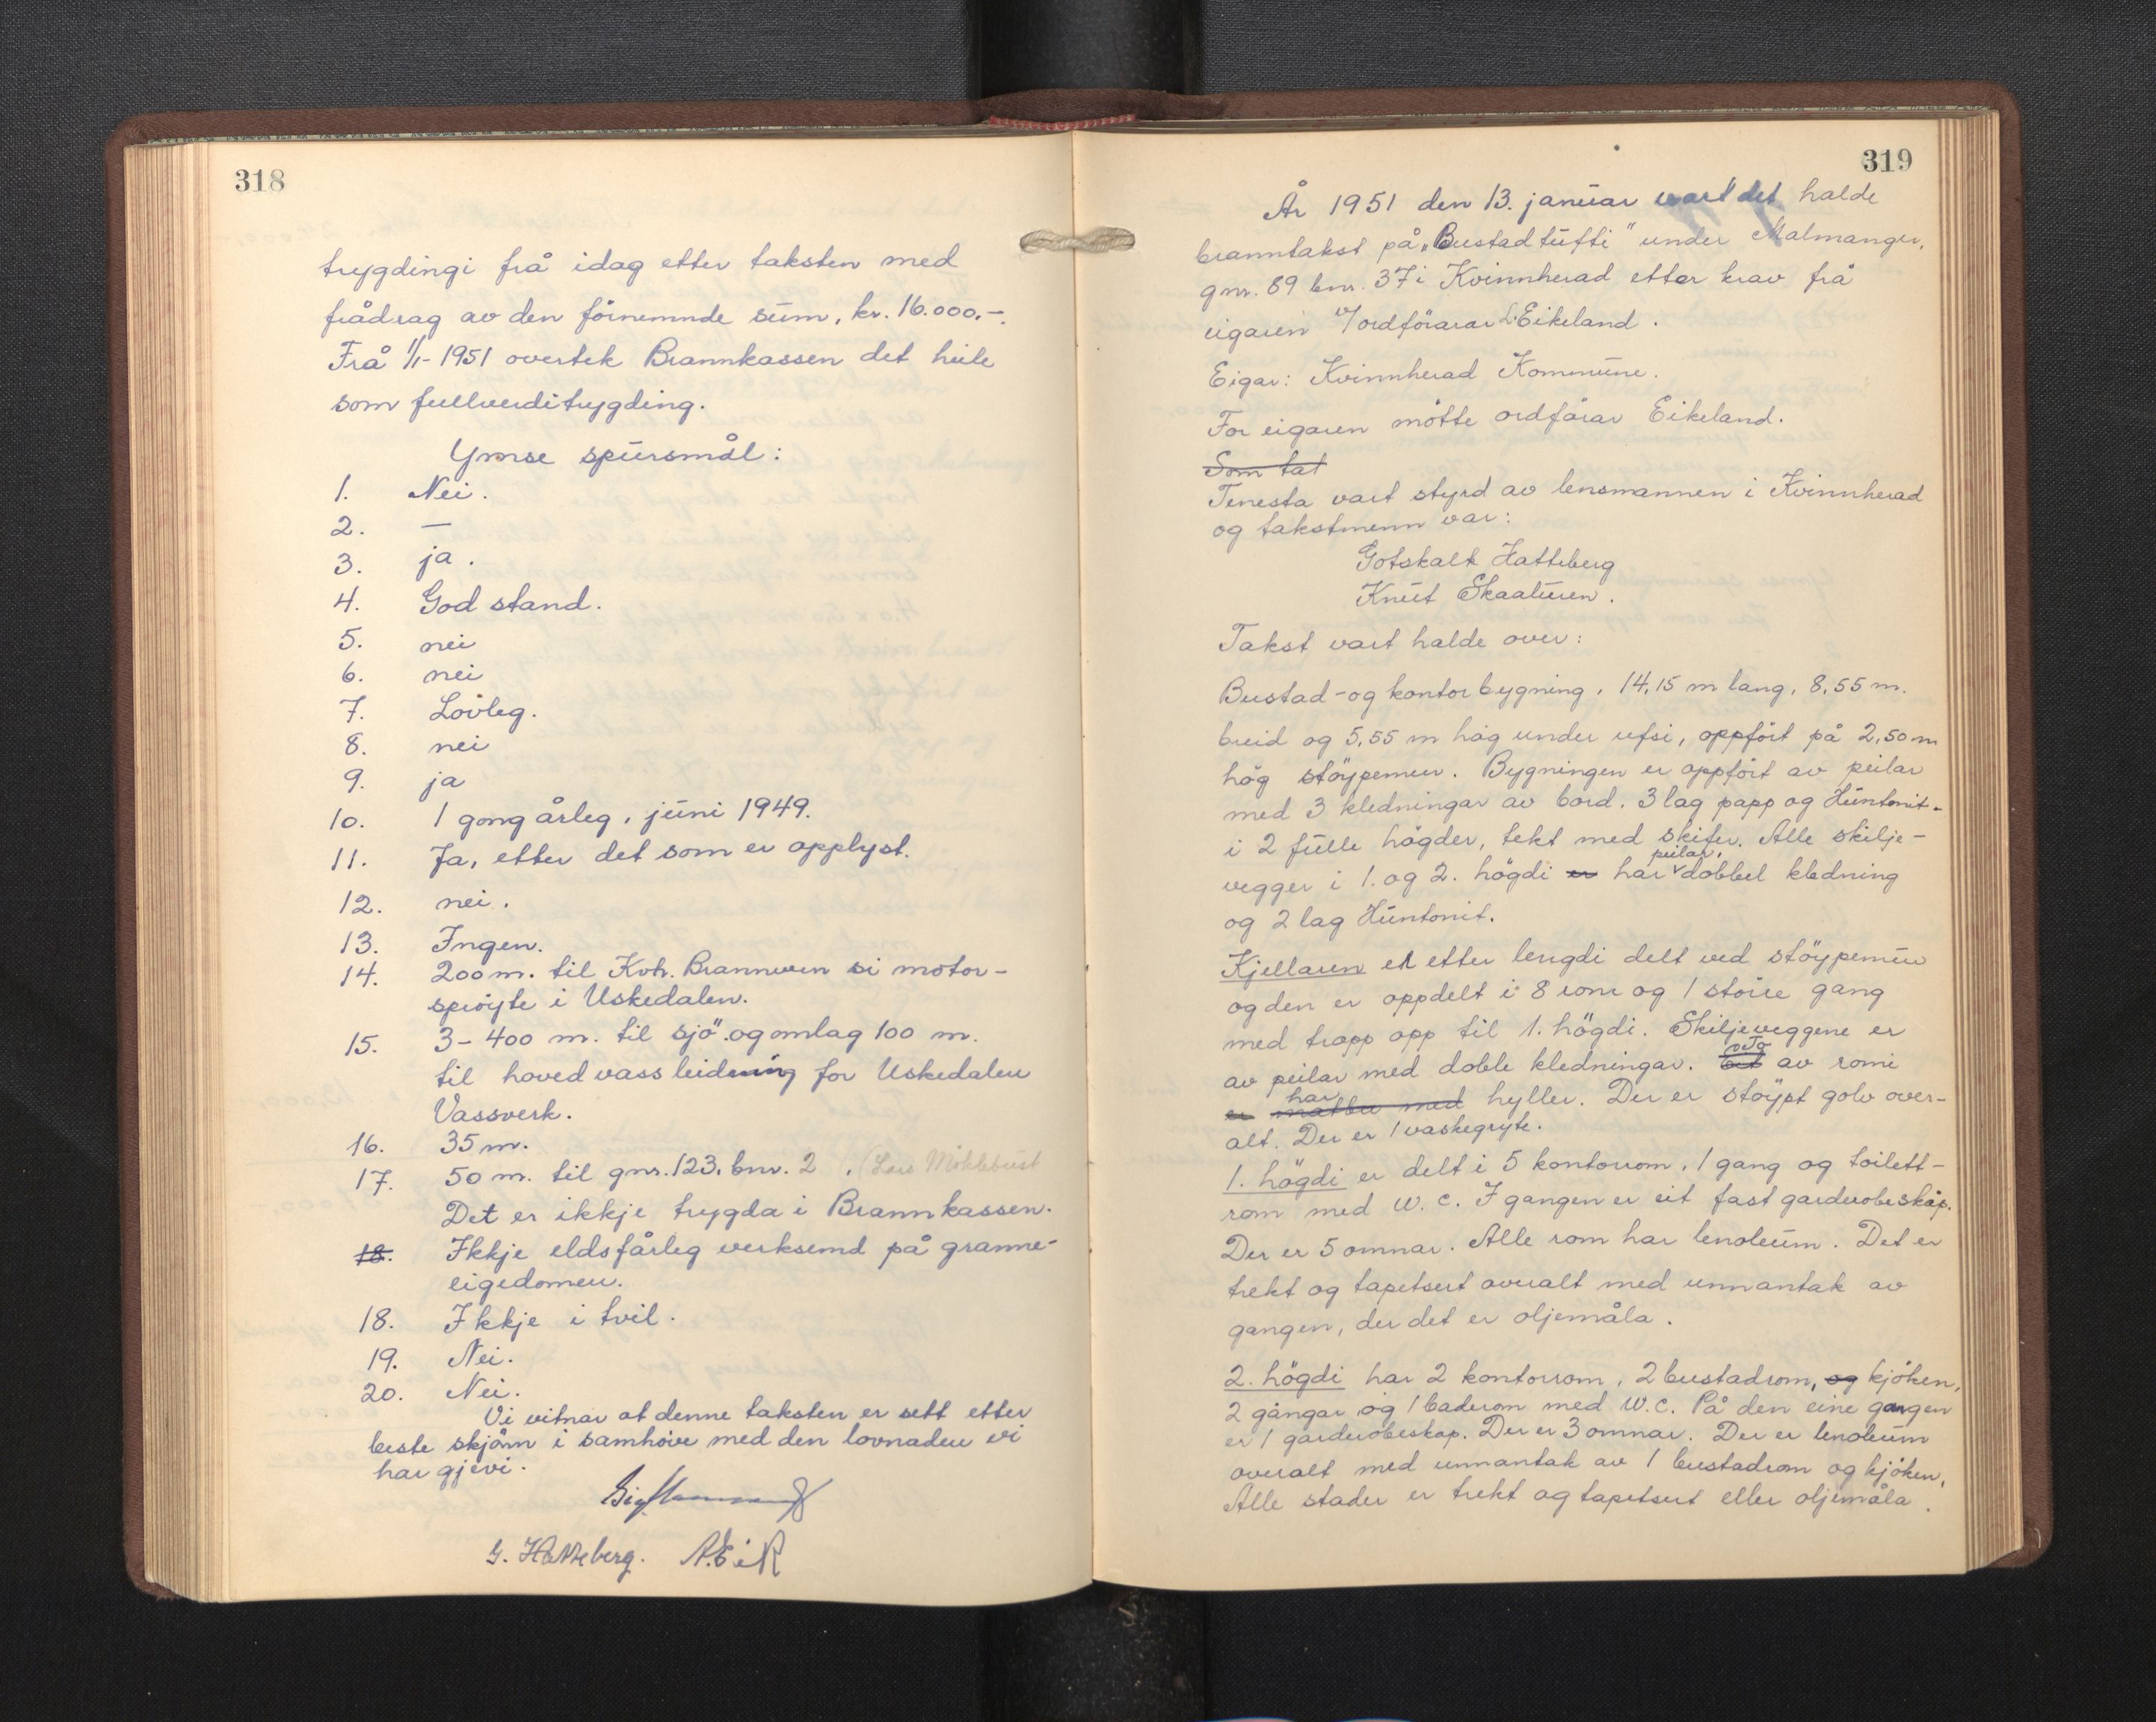 318
trygdingi frå idag etter taksten med
frådrag av den förnemnde sum, kr. 16.000,-.
Frå 1/1-1951 overtek Brannkassen det heile
som fullverditrygding.
Ymse spursmål:
1. Nei.
2. —
3. ja.
4. God stand.
5. nei
6. nei
7. Lovleg.
8. nei
9. ja
10. 1 gong årleg, juni 1949.
11. Ja, etter det som er opplyst.
12. nei.
13. Ingen.
14. 200 m. til Kvh. Brannvern si motor-
spröyte i Uskedalen.
15. 3-400 m. til sjö og omlag 100 m.
til hovedvassleidning for Uskedalen
Vassverk.
16. 35 m.
17. 50 m. til gnr. 123, bnr. 2. (Lars Miklebust
Det er ikkje trygda i Brannkassen.
18. Ikkje eldsfårleg verksemd på granne-
eigedomen.
18. Ikkje i tvil.
19. Nei.
20. Nei.
Vi vitnar at denne taksten er sett etter
beste skjönn i samhöve med den lovnaden vi
har gjevi.
G. Hatteberg. A. Eik
319
År 1951 den 13. januar vart det halde
branntakst på „Bustadtufti" under Malmanger,
gnr. 89 bnr. 37 i Kvinnherad etter krav frå
eigaren v/ordförarar L. Eikeland.
Eigar: Kvinnherad Kommune.
For eigaren mötte ordförar Eikeland.
Som tat
Tenesta vart styrd av lensmannen i Kvinnherad
og takstmenn var:
Gotskalk Hatteberg
Knut Skaaluren.
Takst vart halde over:
Bustad- og kontorbygning, 14,15 m lang, 8,55 m.
breid og 5,55 m hög under ufsi, oppfört på 2,50 m
hög stöypemur. Bygningen er oppfört av peilar
med 3 kledningar av bord, 3 lag papp og Huntonit-
i 2 fulle högder, tekt med skifer. Alle skilje-
vegger i 1. og 2. högdi er har peilar, dobbel kledning
og 2 lag Huntonit.
Kjellaren er etter lengdi delt ved stöypemur
og den er oppdelt i 8 rom og 1 störe gang
med tropp opp til 1. högdi. Skiljeveggene er
av peilar med doble kledningar. Eit To av romi
er matbu med har hyller. Der er stöypt golv over-
alt. Der er 1 vaskegryte.
1. högdi er delt i 5 kontorrom, 1 gang og toilett-
rom med W.C. I gangen er eit fast garderobeskåp.
Der er 5 omnar. Alle rom har lenoleum. Det er
trekt og tapetsert overalt med unnantak av
gangen, der det er oljemåla.
2. högdi har 2 kontorrom, 2 bustadrom, og kjöken,
2 gångar og 1 baderom med W.C. På den eine gangen
er 1 garderobeskap. Der er 3 omnar. Der er lenoleum
overalt med unnantak av 1 bustadrom og kjöken,
Alle stader er trekt og tapetsert eller oljemåla.